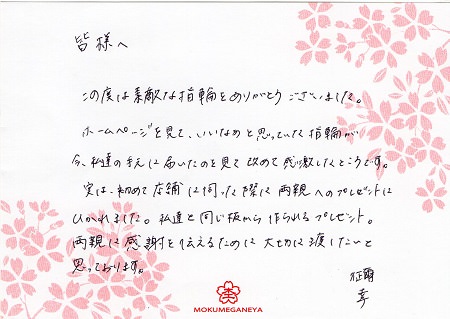 皆様へ
この度は素敵な指輪をありがとうございました。
ホームページを見て、いいなぁと思っていた指輪が
今、私達の手元に届いたのを見て改めて感激したところです。
実は、初めて店舗に伺った際に両親へのプレゼントに
ひかれました。私達と同じ板から作られるプレゼント。
両親に感謝を伝えるために大切に渡したいと
思っております。
幸
MOKUMEGANEYA